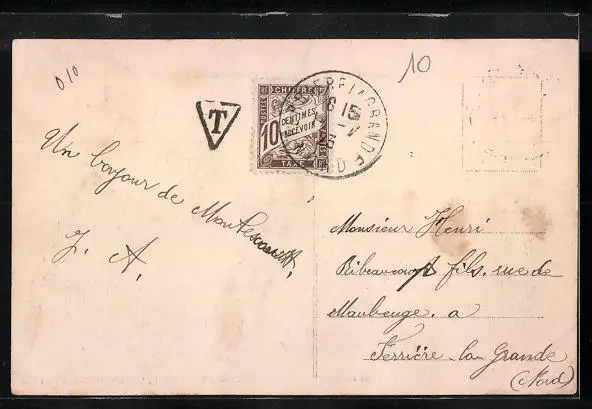 010
10
T
CHIFFRE
POSTES
10
CENTIMES
A PERCEVOIR
TAXE
FERRIERE LA GRANDE
NORD
Un bonjour de
J. A.
Monsieur Henri
Ribeaucourt fils. rue de
Maubeuge. a
Ferrière-la-Grande
(Nord)